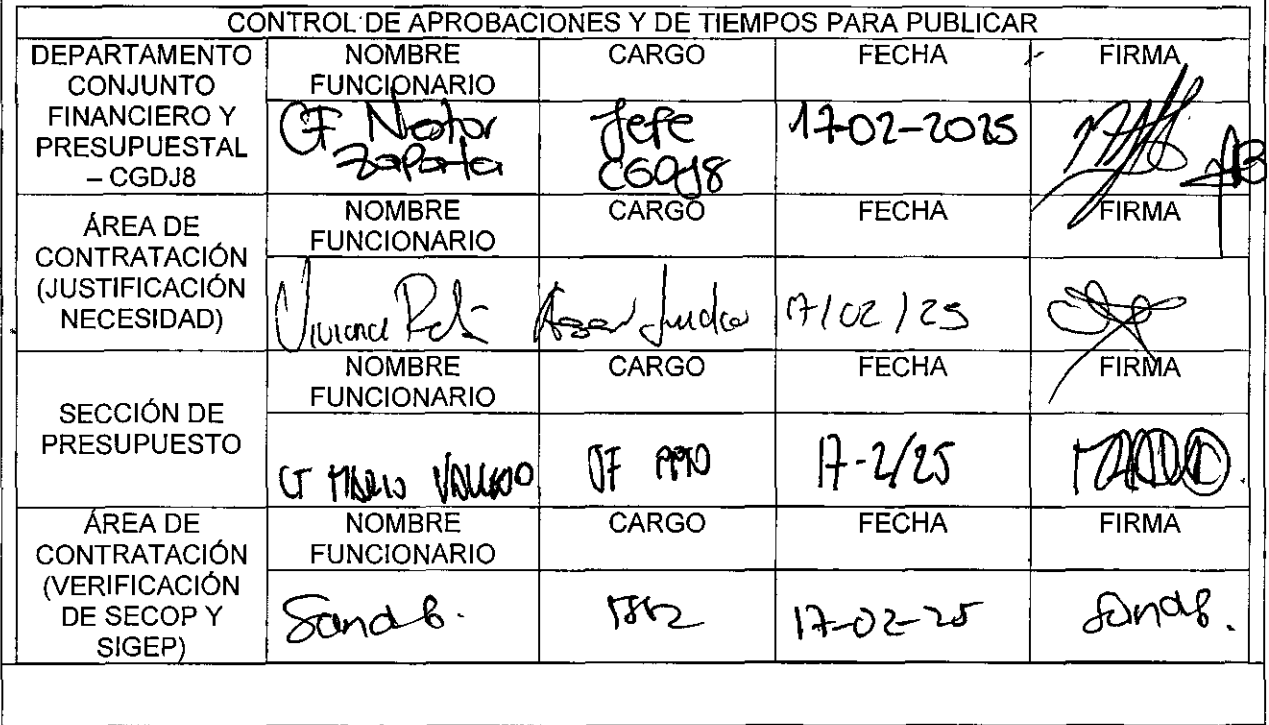 CONTROL DE APROBACIONES Y DE TIEMPOS PARA PUBLICAR
DEPARTAMENTO CONJUNTO FINANCIERO Y PRESUPUESTAL – CGDJ8
NOMBRE FUNCIONARIO CARGO FECHA FIRMA
CF Nestor Zapata Jefe CGDJ8 17-02-2025
ÁREA DE CONTRATACIÓN (JUSTIFICACIÓN NECESIDAD)
NOMBRE FUNCIONARIO CARGO FECHA FIRMA
Viviana 17/02/25
SECCIÓN DE PRESUPUESTO
NOMBRE FUNCIONARIO CARGO FECHA FIRMA
CT MARIO 17-2/25
ÁREA DE CONTRATACIÓN (VERIFICACIÓN DE SECOP Y SIGEP)
NOMBRE FUNCIONARIO CARGO FECHA FIRMA
17-02-25